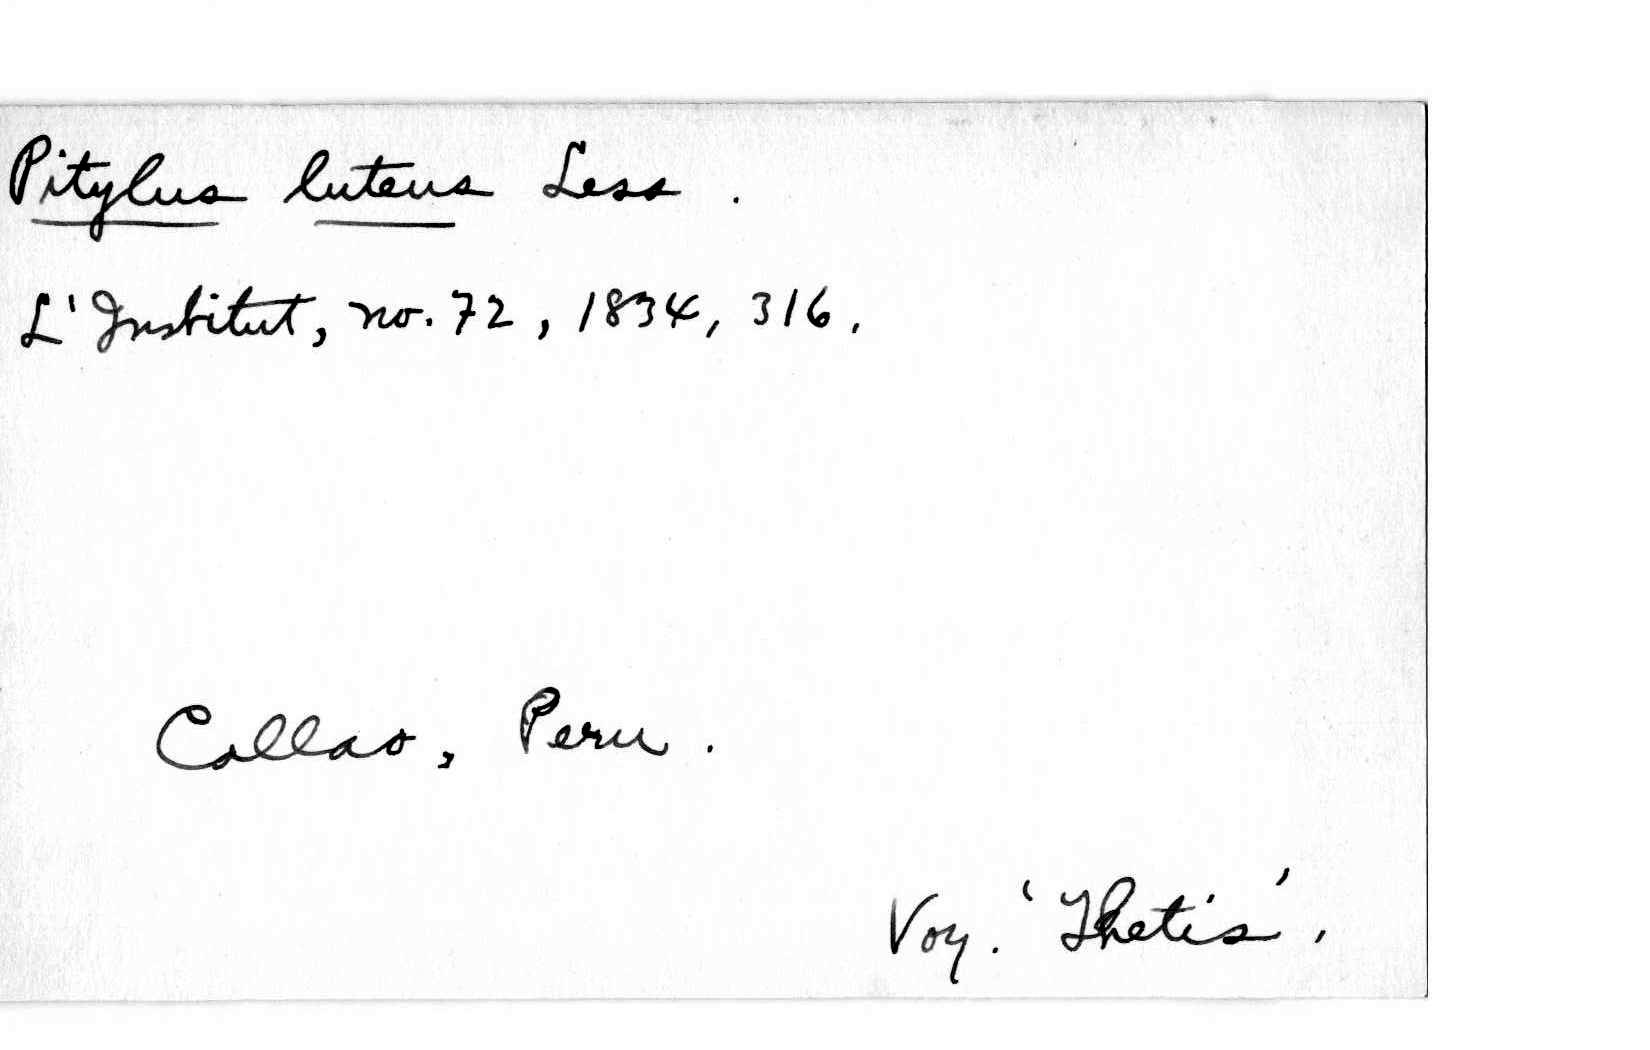 Pitylus luteus Less.
L'Institut, no. 72, 1834, 316.
Callao, Peru.
Voy. 'Thetis'.